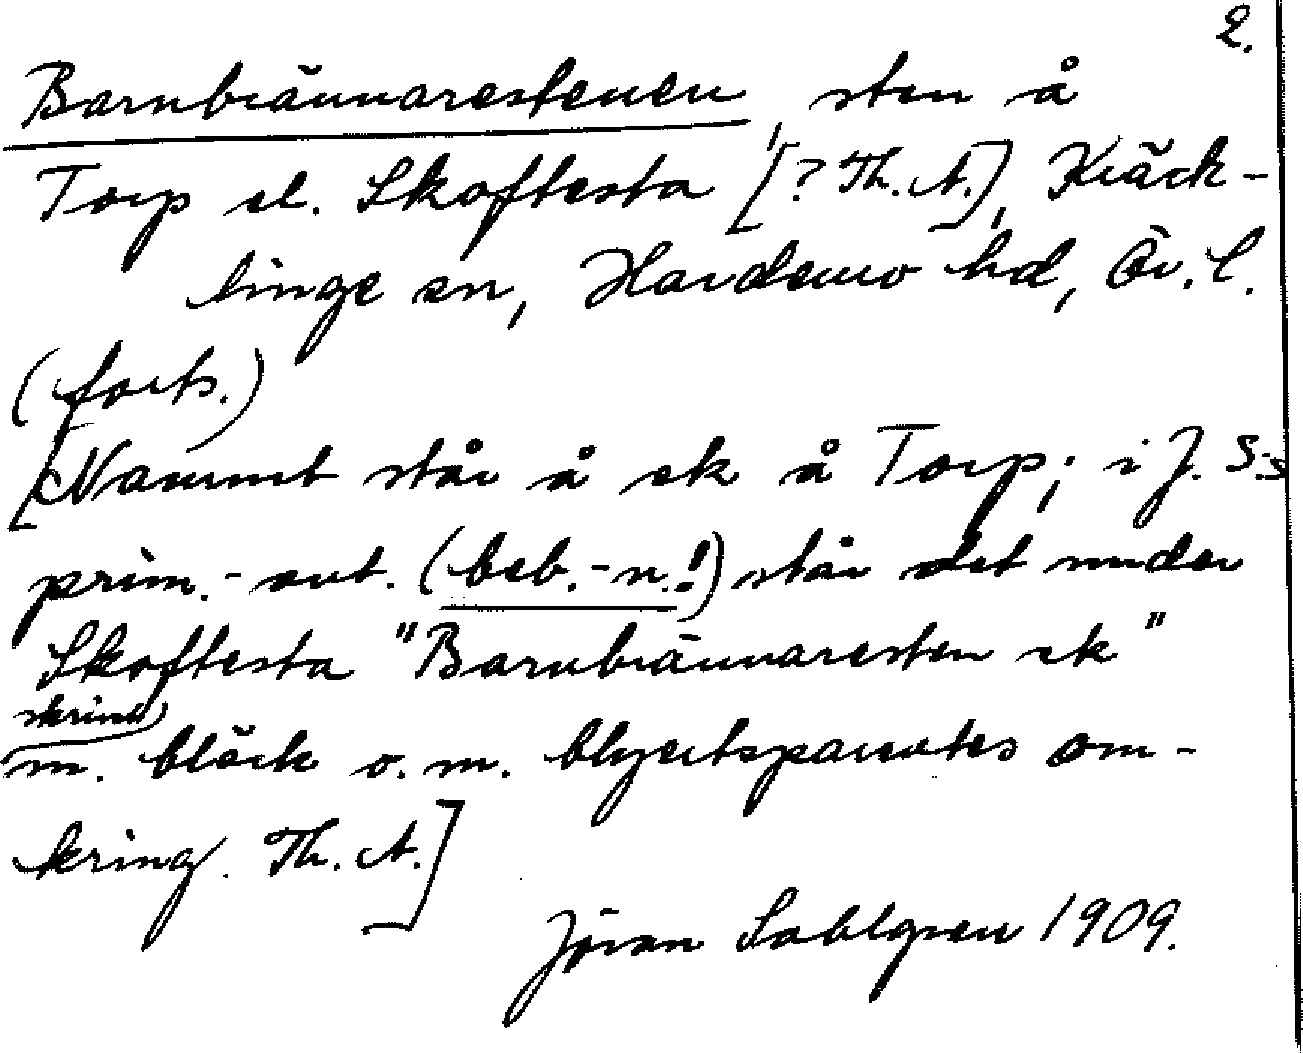 2.
Barnbrännarestenen, sten å
Torp el. Skoftesta [? Th. A.], Kräck-
linge sn, Hardemo hd, Ör. l.
(forts.)
[Namnet står å ek å Torp; i J. S:s
prim.-ant. (beb.-n.!) står det under
Skoftesta "Barnbrännaresten ek"
skrivet
m. bläck o. m. blyertsparentes om-
kring. Th. A.]
Jöran Sahlgren 1909.